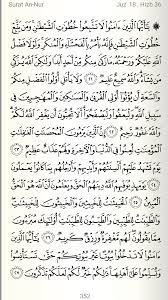 Surat An-Nur Juz 18, Hizb 36
۞ يَٰٓأَيُّهَا ٱلَّذِينَ ءَامَنُوا۟ لَا تَتَّبِعُوا۟ خُطُوَٰتِ ٱلشَّيْطَٰنِ ۚ وَمَن يَتَّبِعْ
خُطُوَٰتِ ٱلشَّيْطَٰنِ فَإِنَّهُۥ يَأْمُرُ بِٱلْفَحْشَآءِ وَٱلْمُنكَرِ ۚ وَلَوْلَا فَضْلُ
ٱللَّهِ عَلَيْكُمْ وَرَحْمَتُهُۥ مَا زَكَىٰ مِنكُم مِّنْ أَحَدٍ أَبَدًا وَلَٰكِنَّ ٱللَّهَ يُزَكِّى
مَن يَشَآءُ ۗ وَٱللَّهُ سَمِيعٌ عَلِيمٌ ٢١ وَلَا يَأْتَلِ أُو۟لُوا۟ ٱلْفَضْلِ مِنكُمْ
وَٱلسَّعَةِ أَن يُؤْتُوٓا۟ أُو۟لِى ٱلْقُرْبَىٰ وَٱلْمَسَٰكِينَ وَٱلْمُهَٰجِرِينَ فِى
سَبِيلِ ٱللَّهِ ۖ وَلْيَعْفُوا۟ وَلْيَصْفَحُوٓا۟ ۗ أَلَا تُحِبُّونَ أَن يَغْفِرَ ٱللَّهُ لَكُمْ ۗ
وَٱللَّهُ غَفُورٌ رَّحِيمٌ ٢٢ إِنَّ ٱلَّذِينَ يَرْمُونَ ٱلْمُحْصَنَٰتِ ٱلْغَٰفِلَٰتِ
ٱلْمُؤْمِنَٰتِ لُعِنُوا۟ فِى ٱلدُّنْيَا وَٱلْءَاخِرَةِ وَلَهُمْ عَذَابٌ عَظِيمٌ ٢٣
يَوْمَ تَشْهَدُ عَلَيْهِمْ أَلْسِنَتُهُمْ وَأَيْدِيهِمْ وَأَرْجُلُهُم بِمَا كَانُوا۟
يَعْمَلُونَ ٢٤ يَوْمَئِذٍ يُوَفِّيهِمُ ٱللَّهُ دِينَهُمُ ٱلْحَقَّ وَيَعْلَمُونَ
أَنَّ ٱللَّهَ هُوَ ٱلْحَقُّ ٱلْمُبِينُ ٢٥ ٱلْخَبِيثَٰتُ لِلْخَبِيثِينَ وَٱلْخَبِيثُونَ
لِلْخَبِيثَٰتِ ۖ وَٱلطَّيِّبَٰتُ لِلطَّيِّبِينَ وَٱلطَّيِّبُونَ لِلطَّيِّبَٰتِ ۚ
أُو۟لَٰٓئِكَ مُبَرَّءُونَ مِمَّا يَقُولُونَ ۖ لَهُم مَّغْفِرَةٌ وَرِزْقٌ كَرِيمٌ ٢٦
يَٰٓأَيُّهَا ٱلَّذِينَ ءَامَنُوا۟ لَا تَدْخُلُوا۟ بُيُوتًا غَيْرَ بُيُوتِكُمْ حَتَّىٰ
تَسْتَأْنِسُوا۟ وَتُسَلِّمُوا۟ عَلَىٰٓ أَهْلِهَا ۚ ذَٰلِكُمْ خَيْرٌ لَّكُمْ لَعَلَّكُمْ تَذَكَّرُونَ ٢٧
352